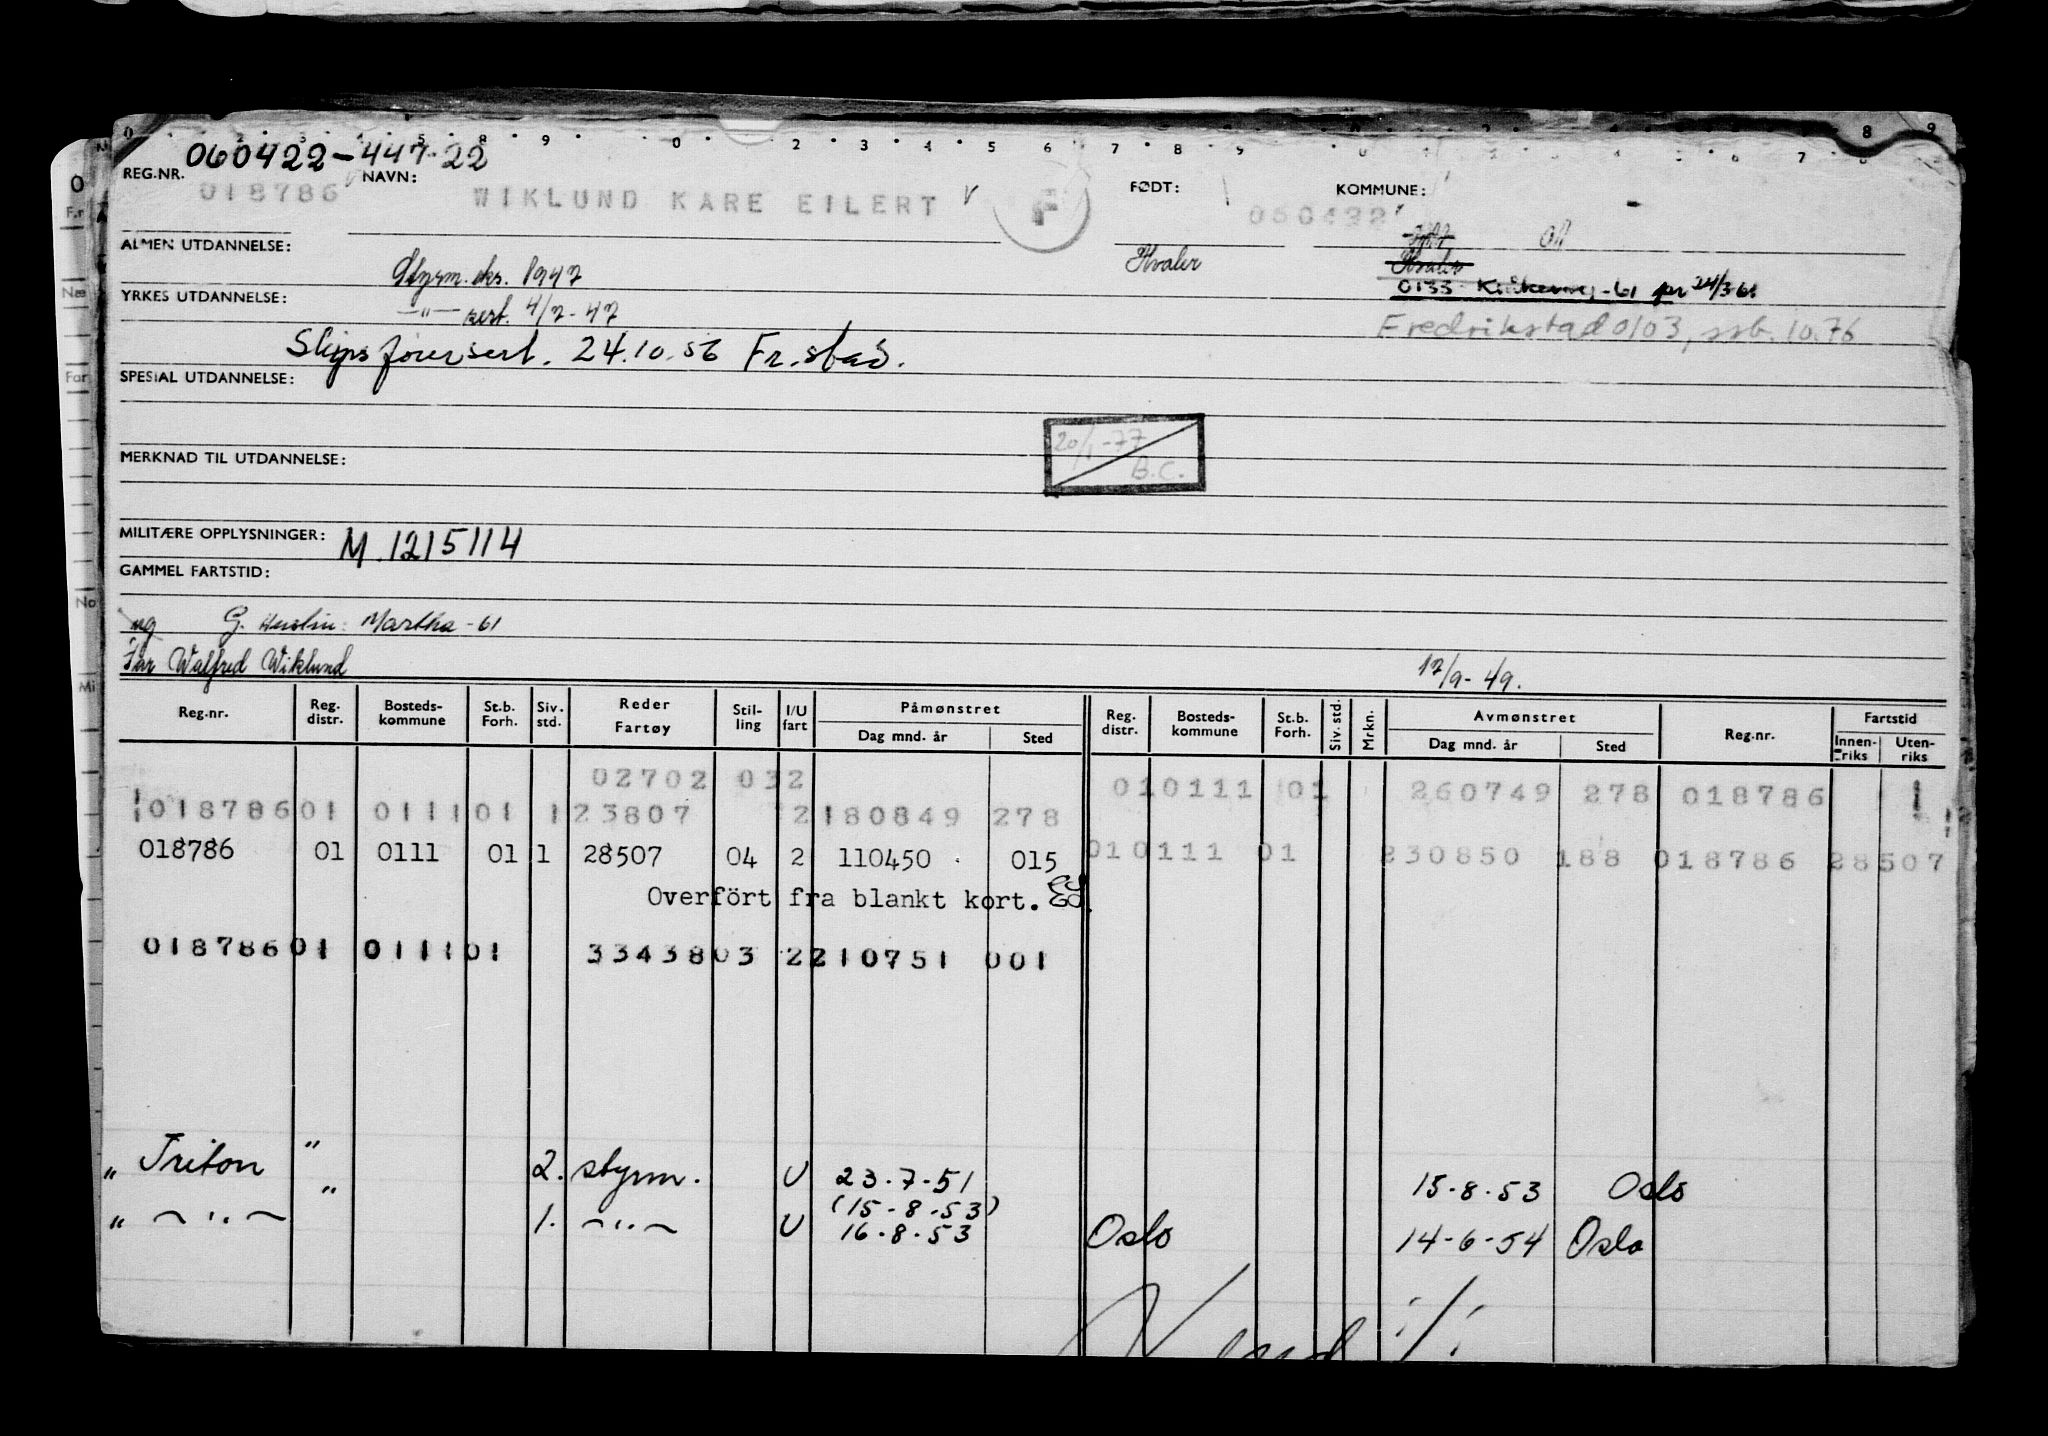 060422-447-22
REG.NR. NAVN: FØDT: KOMMUNE:
018786 WIKLUND KARE EILERT F 060422
ALMEN UTDANNELSE: Styrm.eks. 1947 Hvaler Hvaler
YRKES UTDANNELSE: —"— sert. 4/7-47 0133 -61 pr 24/3 61
Fredrikstad 0103, ssb. 10.76
Skipsførersert. 24.10.56 Fr.stad.
SPESIAL UTDANNELSE:
20/1-77
B.C.
MERKNAD TIL UTDANNELSE:
MILITÆRE OPPLYSNINGER: M.1215114
GAMMEL FARTSTID:
ug G. Martha -61
Far Walfred Wiklund 17/9-49.
Reg.nr. Reg. distr. Bosteds-kommune St.b. Forh. Siv. std. Reder Fartøy Stil-ling I/U fart Påmønstret Dag mnd. år Sted Reg. distr. Bosteds-kommune St.b. Forh. Siv. std. Mrkn. Avmønstret Dag mnd. år Sted Reg.nr. Fartstid Innen-riks Uten-riks
02702 032 010111 01 260749 278 018786
018786 01 0111 01 1 23807 2 180849 278
018786 01 0111 01 1 28507 04 2 110450 015 010111 01 230850 188 018786 28507
Overfört fra blankt kort.
018786 01 0111 01 33438 03 2 210751 001
" Triton " 2. styrm. U 23.7.51 15.8.53 Oslo
(15.8.53)
" —"— " 1. —"— U 16.8.53 Oslo 14-6-54 Oslo